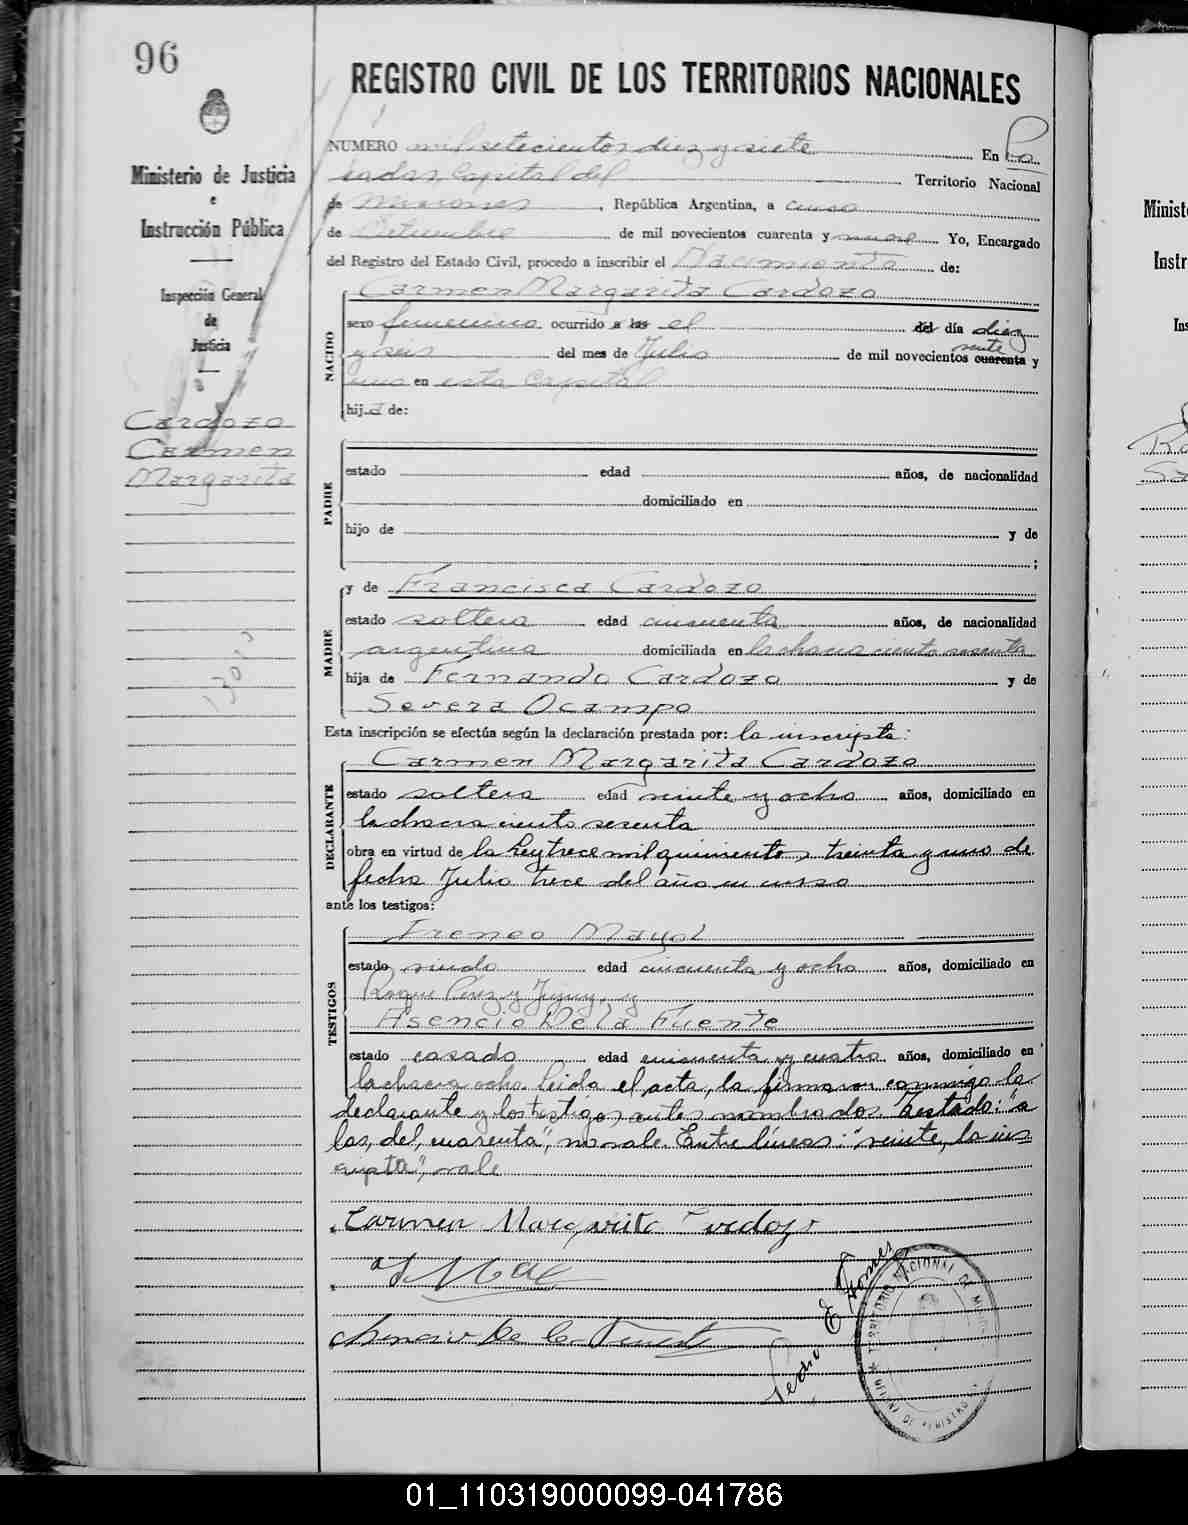 96
REGISTRO CIVIL DE LOS TERRITORIOS NACIONALES
Ministerio de Justicia
e
Instrucción Pública
Inspección General
de
Justicia
Cardozo
Carmen
Margarita
NÚMERO mil setecientos diez y siete En Po
sadas, Capital del Territorio Nacional
de Misiones, República Argentina, a cinco
de Octubre de mil novecientos cuarenta y nueve Yo, Encargado
del Registro del Estado Civil, procedo a inscribir el Nacimiento de:
NACIDO
Carmen Margarita Cardozo
sexo femenino ocurrido a las el del día diez
y seis del mes de Julio de mil novecientos cuarenta veinte y
uno en esta Capital
hija de:
PADRE
estado edad años, de nacionalidad
domiciliado en
hijo de y de
;
MADRE
y de Francisca Cardozo
estado soltera edad cincuenta años, de nacionalidad
argentina domiciliada en la chacra ciento sesenta
hija de Fernando Cardozo y de
Severa Ocampo
Esta inscripción se efectúa según la declaración prestada por: la inscripta:
DECLARANTE
Carmen Margarita Cardozo
estado soltera edad veinte y ocho años, domiciliado en
la chacra ciento sesenta
obra en virtud de la Ley trece mil quinientos treinta y uno de
fecha Julio trece del año en curso
ante los testigos:
TESTIGOS
Ireneo Mayol
estado viudo edad cincuenta y ocho años, domiciliado en
Roque Pérez y Jujuy, y
Asencio De la Fuente
estado casado edad cincuenta y cuatro años, domiciliado en
la chacra ocho. Leida el acta, la firmaron conmigo la
declarante y los testigos antes nombrados. Testado: "a
las, del, cuarenta", no vale. Entre líneas: "veinte, la ins
cripta", vale
Carmen Margarita Cardozo
Asencio De la Fuente
Pedro E Gomez
TERRITORIO NACIONAL DE MISIONES
01_110319000099-041786